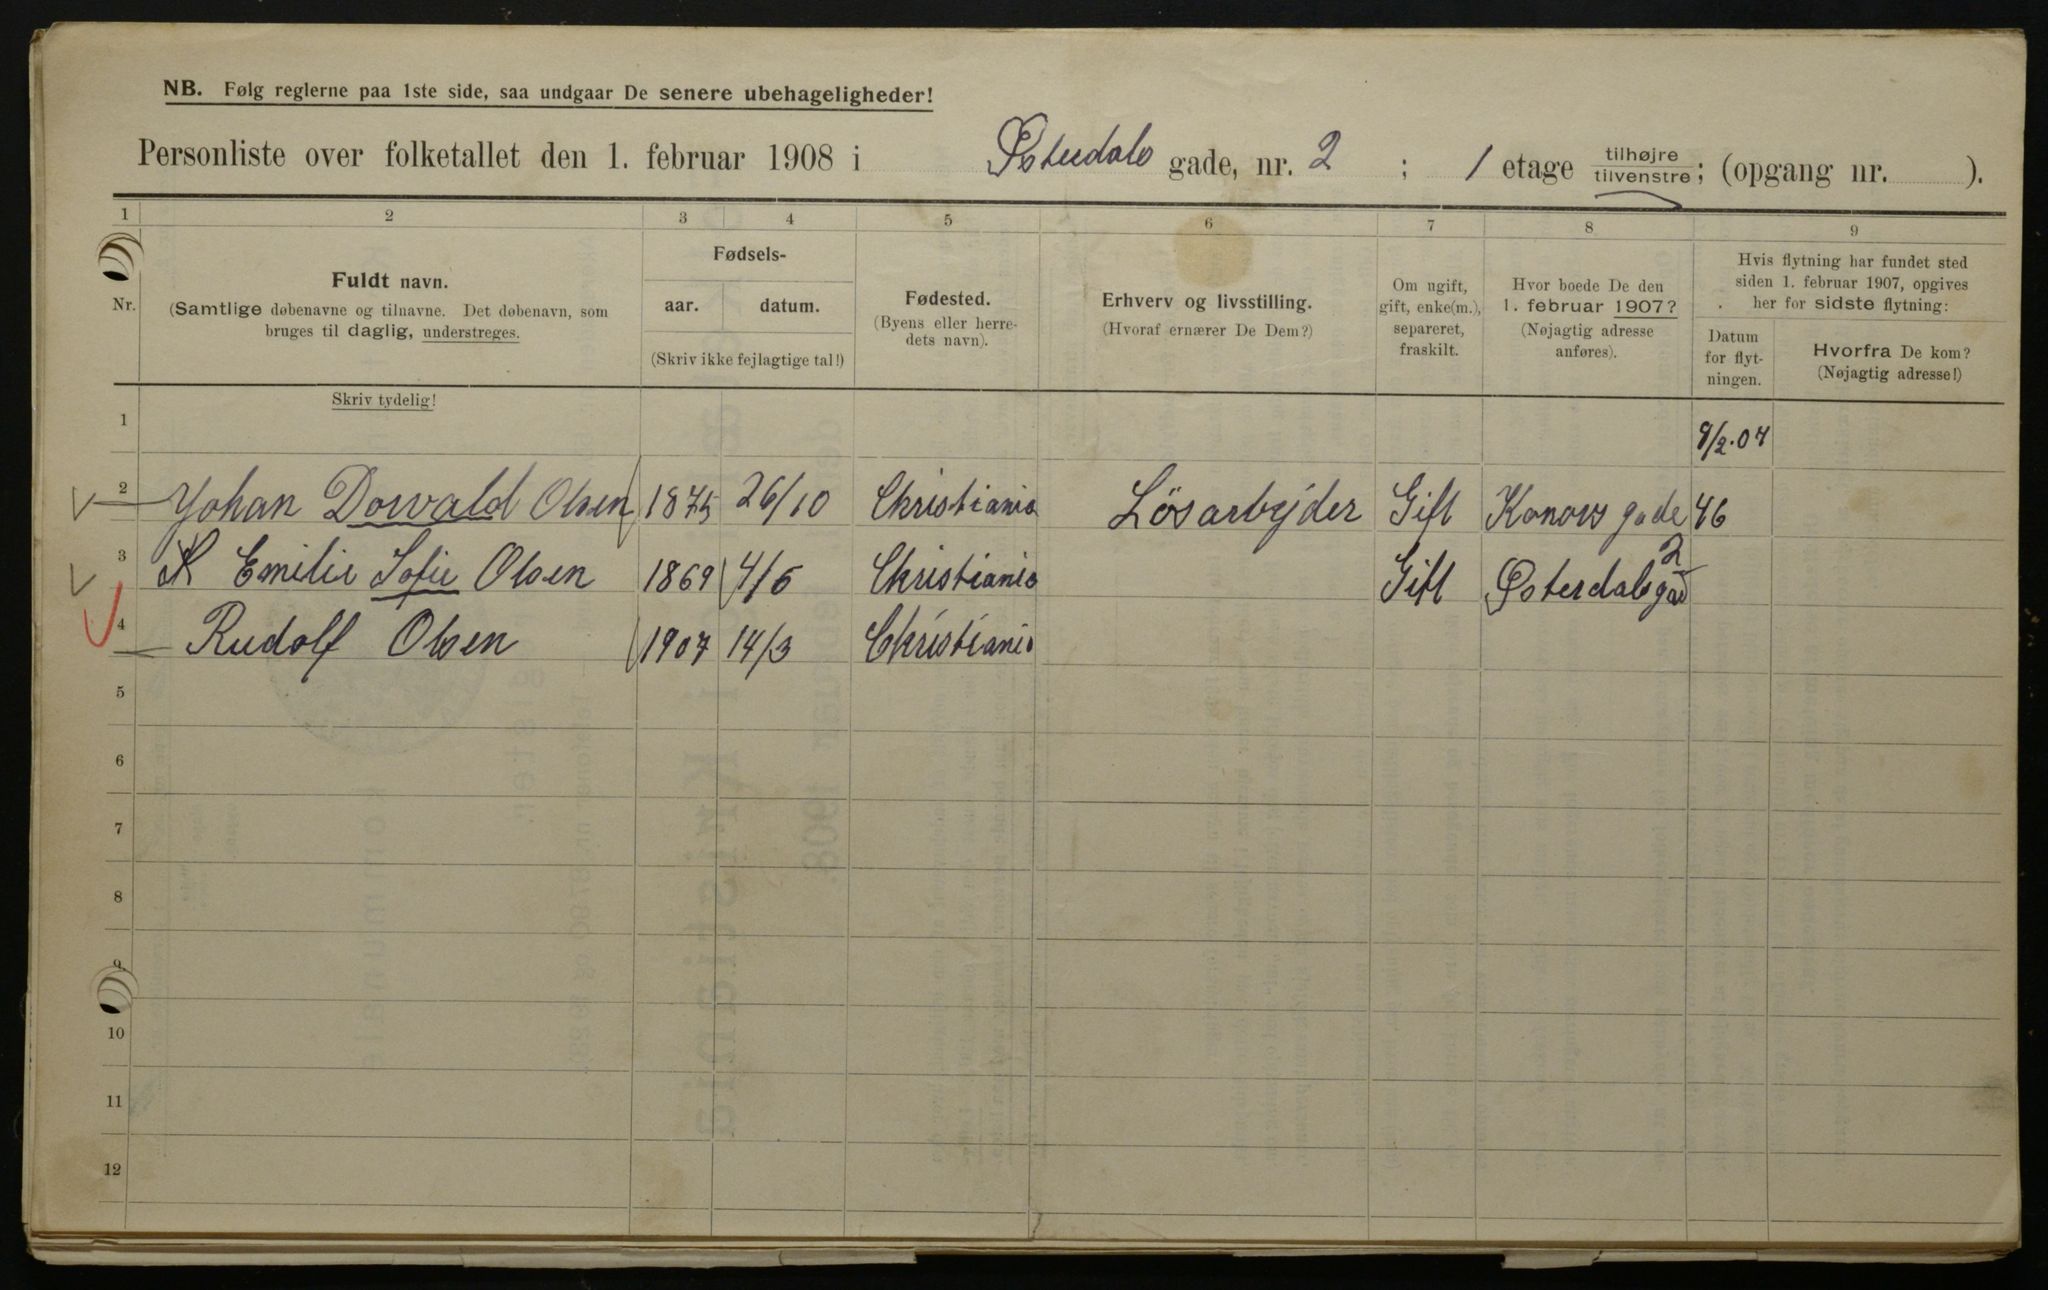 NB. Følg reglerne paa 1ste side, saa undgaar De senere ubehageligheder!
Personliste over folketallet den 1. februar 1908 i Østerdals gade, nr. 2 ; 1 etage tilhøjre tilvenstre; (opgang nr. ).
1 2 3 4 5 6 7 8 9
Nr.
Fuldt navn.
(Samtlige døbenavne og tilnavne. Det døbenavn, som
bruges til daglig, understreges.
Skriv tydelig!
Fødsels-
aar. datum.
(Skriv ikke fejlagtige tal!)
Fødested.
(Byens eller herre-
dets navn).
Erhverv og livsstilling.
(Hvoraf ernærer De Dem?)
Om ugift,
gift, enke(m.),
separeret,
fraskilt.
Hvor boede De den
1. februar 1907?
(Nøjagtig adresse
anføres).
Hvis flytning har fundet sted
siden 1. februar 1907, opgives
her for sidste flytning:
Datum
for flyt-
ningen.
Hvorfra De kom?
(Nøjagtig adresse!)
1 9/2.07
2 Johan Dowald Olsen 1875 26/10 Christiania Lösarbejder Gift Konows gade 46
3 Emilie Sofie Olsen 1869 4/6 Christiania Gift Østerdalsgad 2
4 Rudolf Olsen 1907 14/3 Christiania
5
6
7
8
9
10
11
12